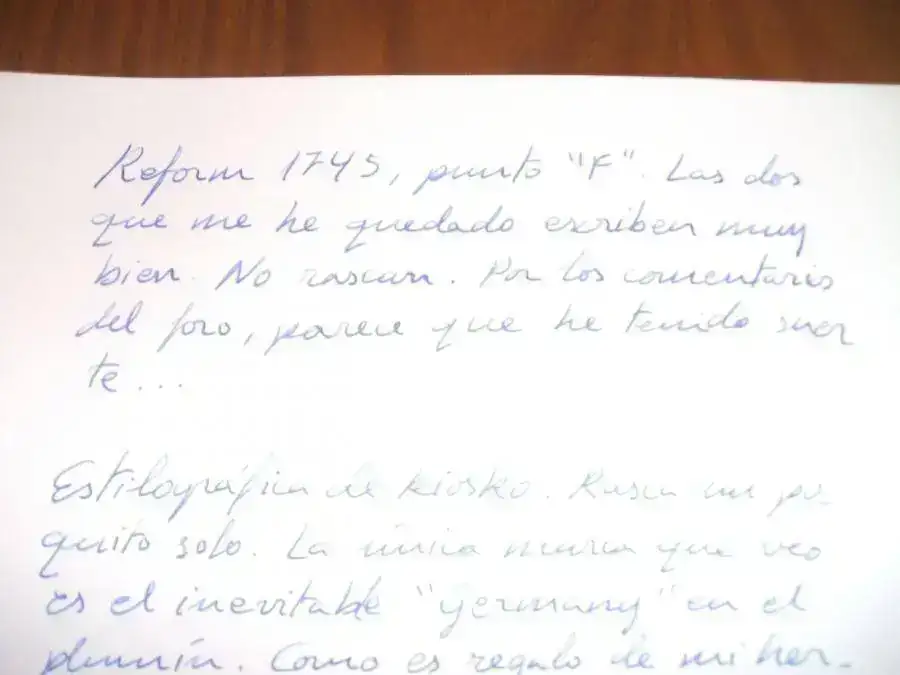 Reform 1745, punto "F". Las dos
que me he quedado escriben muy
bien. No rascan. Por los comentarios
del foro, parece que he tenido suer
te...
Estilográfica de kiosko. Rasca un po-
quito solo. La única marca que veo
es el inevitable "Germany" en el
plumín. Como es regalo de mi her-